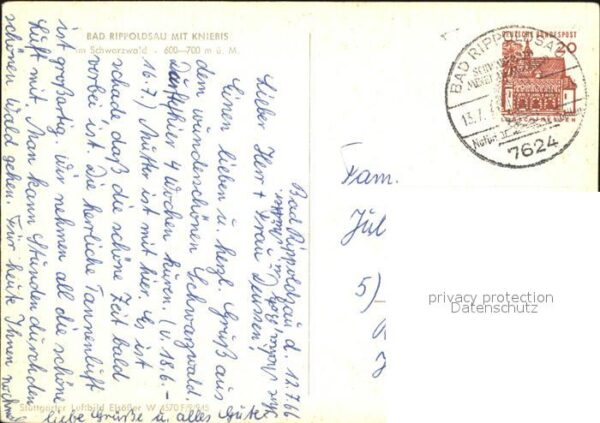 BAD RIPPOLDSAU MIT KNIEBIS
im Schwarzwald - 600-700 m ü. M.
Bad Rippoldsau d. 12.7.66
Lieber Herr + Frau Deussen!
Einen lieben u. herzl. Gruß aus
dem wunderschönen Schwarzwald.
Durfte hier 4 Wochen kuren. (v. 18.6.-
16.7.) Mutter ist mit hier. Es ist
schade, daß die schöne Zeit bald
vorbei ist. Die herrliche Tannenluft
ist großartig. Wir nehmen all die schöne
Luft mit. Man kann Stundendurch den
schönen Wald gehen. Für heute Ihnen nochmal
liebe Grüße u. alles Gute
Ihre
u. Mutter.
Stuttgarter Luftbild Elsäßer W 4570 F/9/945
DEUTSCHE BUNDESPOST
20
BAD RIPPOLDSAU
13.7.
7624
Fam.
Jul
5)
privacy protection
Datenschutz